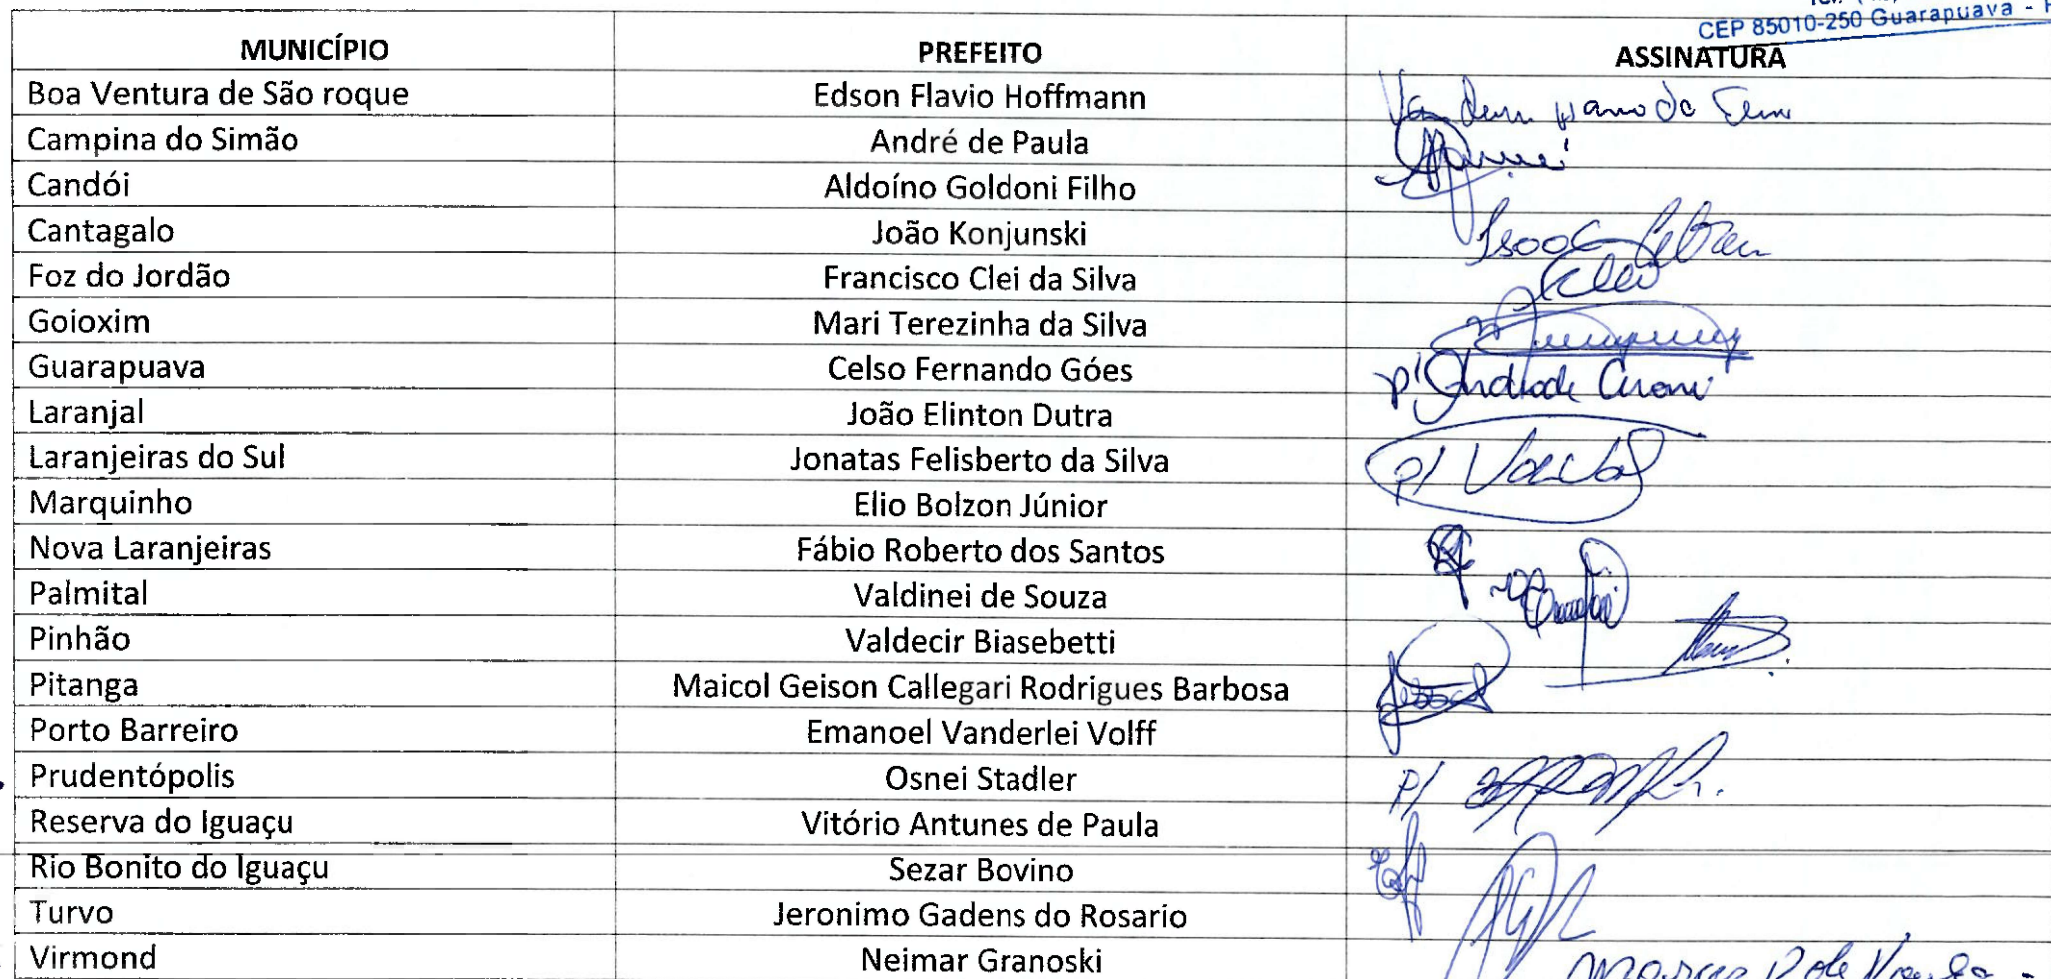 CEP 85010-250 Guarapuava -
MUNICÍPIO PREFEITO ASSINATURA
Boa Ventura de São roque Edson Flavio Hoffmann
Campina do Simão André de Paula
Candói Aldoíno Goldoni Filho
Cantagalo João Konjunski
Foz do Jordão Francisco Clei da Silva Clei
Goioxim Mari Terezinha da Silva
Guarapuava Celso Fernando Góes p/
Laranjal João Elinton Dutra
Laranjeiras do Sul Jonatas Felisberto da Silva p/
Marquinho Elio Bolzon Júnior
Nova Laranjeiras Fábio Roberto dos Santos
Palmital Valdinei de Souza
Pinhão Valdecir Biasebetti
Pitanga Maicol Geison Callegari Rodrigues Barbosa
Porto Barreiro Emanoel Vanderlei Volff
Prudentópolis Osnei Stadler P/
Reserva do Iguaçu Vitório Antunes de Paula
Rio Bonito do Iguaçu Sezar Bovino
Turvo Jeronimo Gadens do Rosario
Virmond Neimar Granoski